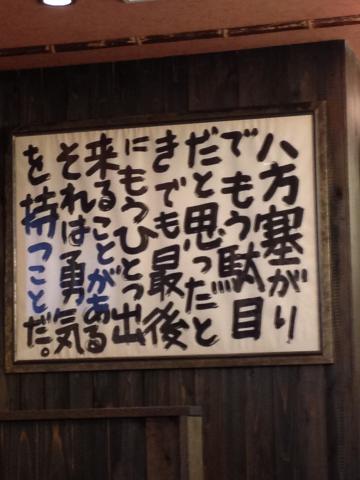 八方塞がり
でもう駄目
だと思っだと
きでも最後
にもうひとつ出
来ることがある
それは勇気
を持つことだ。